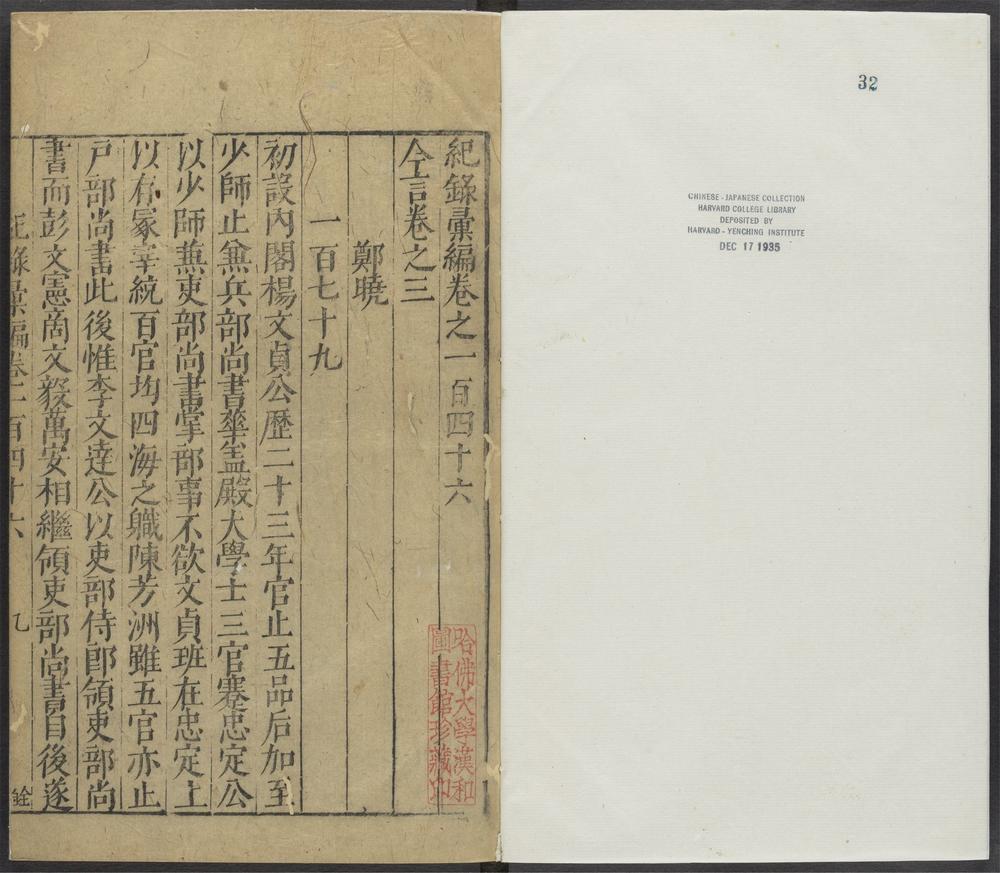 32
CHINESE - JAPANESE COLLECTION
HARVARD COLLEGE LIBRARY
DEPOSITED BY
HARVARD - YENCHING INSTITUTE
DEC 17 1935
紀錄彙編卷之一百四十六
今言卷之三
鄭曉
一百七十九
初設內閣楊文貞公歷二十三年官止五品后加至
少師止兼兵部尚書華盖殿大學士三官蹇忠定公
以少師兼吏部尚書掌部事不欲文貞班在忠定上
以右冢宰統百官均四海之職陳芳洲雖五官亦止
戶部尚書此後惟李文達公以吏部侍郎領吏部尚
書而彭文憲商文毅萬安相繼領吏部尚書自後遂
哈佛大學漢和
圖書館珍藏印
彙編卷一百四十六